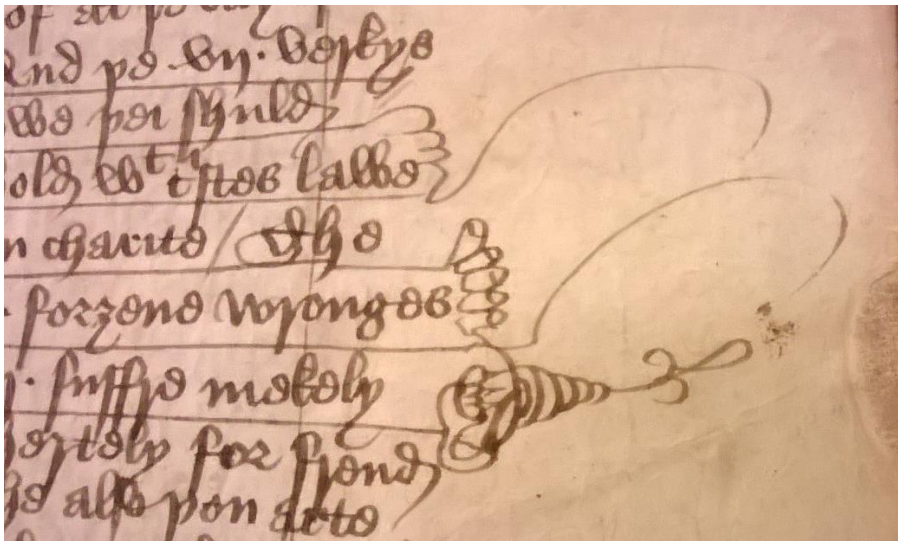 And þe .vij. werkys
we þei schuld
old wt cristes lawe
n charite / The
forȝeue wronges
suffre mekely
ertely for frend